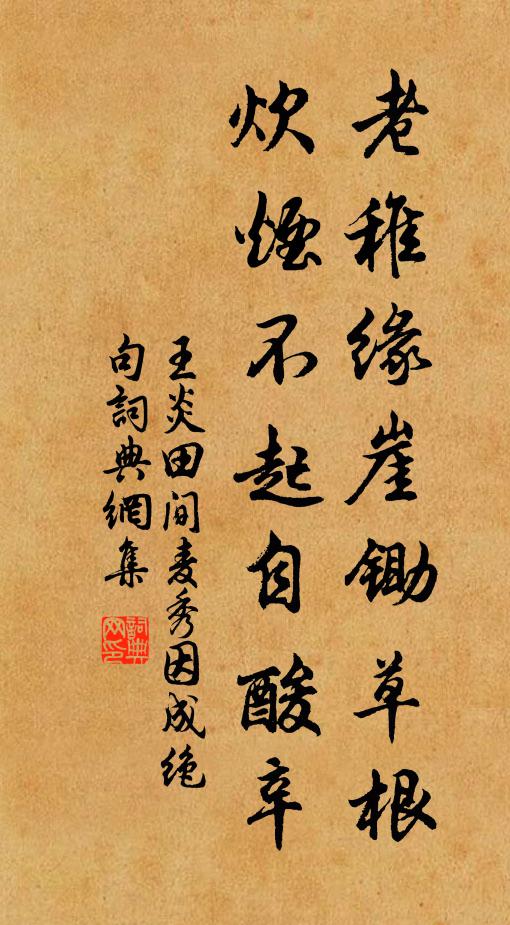 老稚缘崖鋤草根
炊煙不起自酸辛
王炎田间麦秀因成绝
句詞典網集
詞典
网印